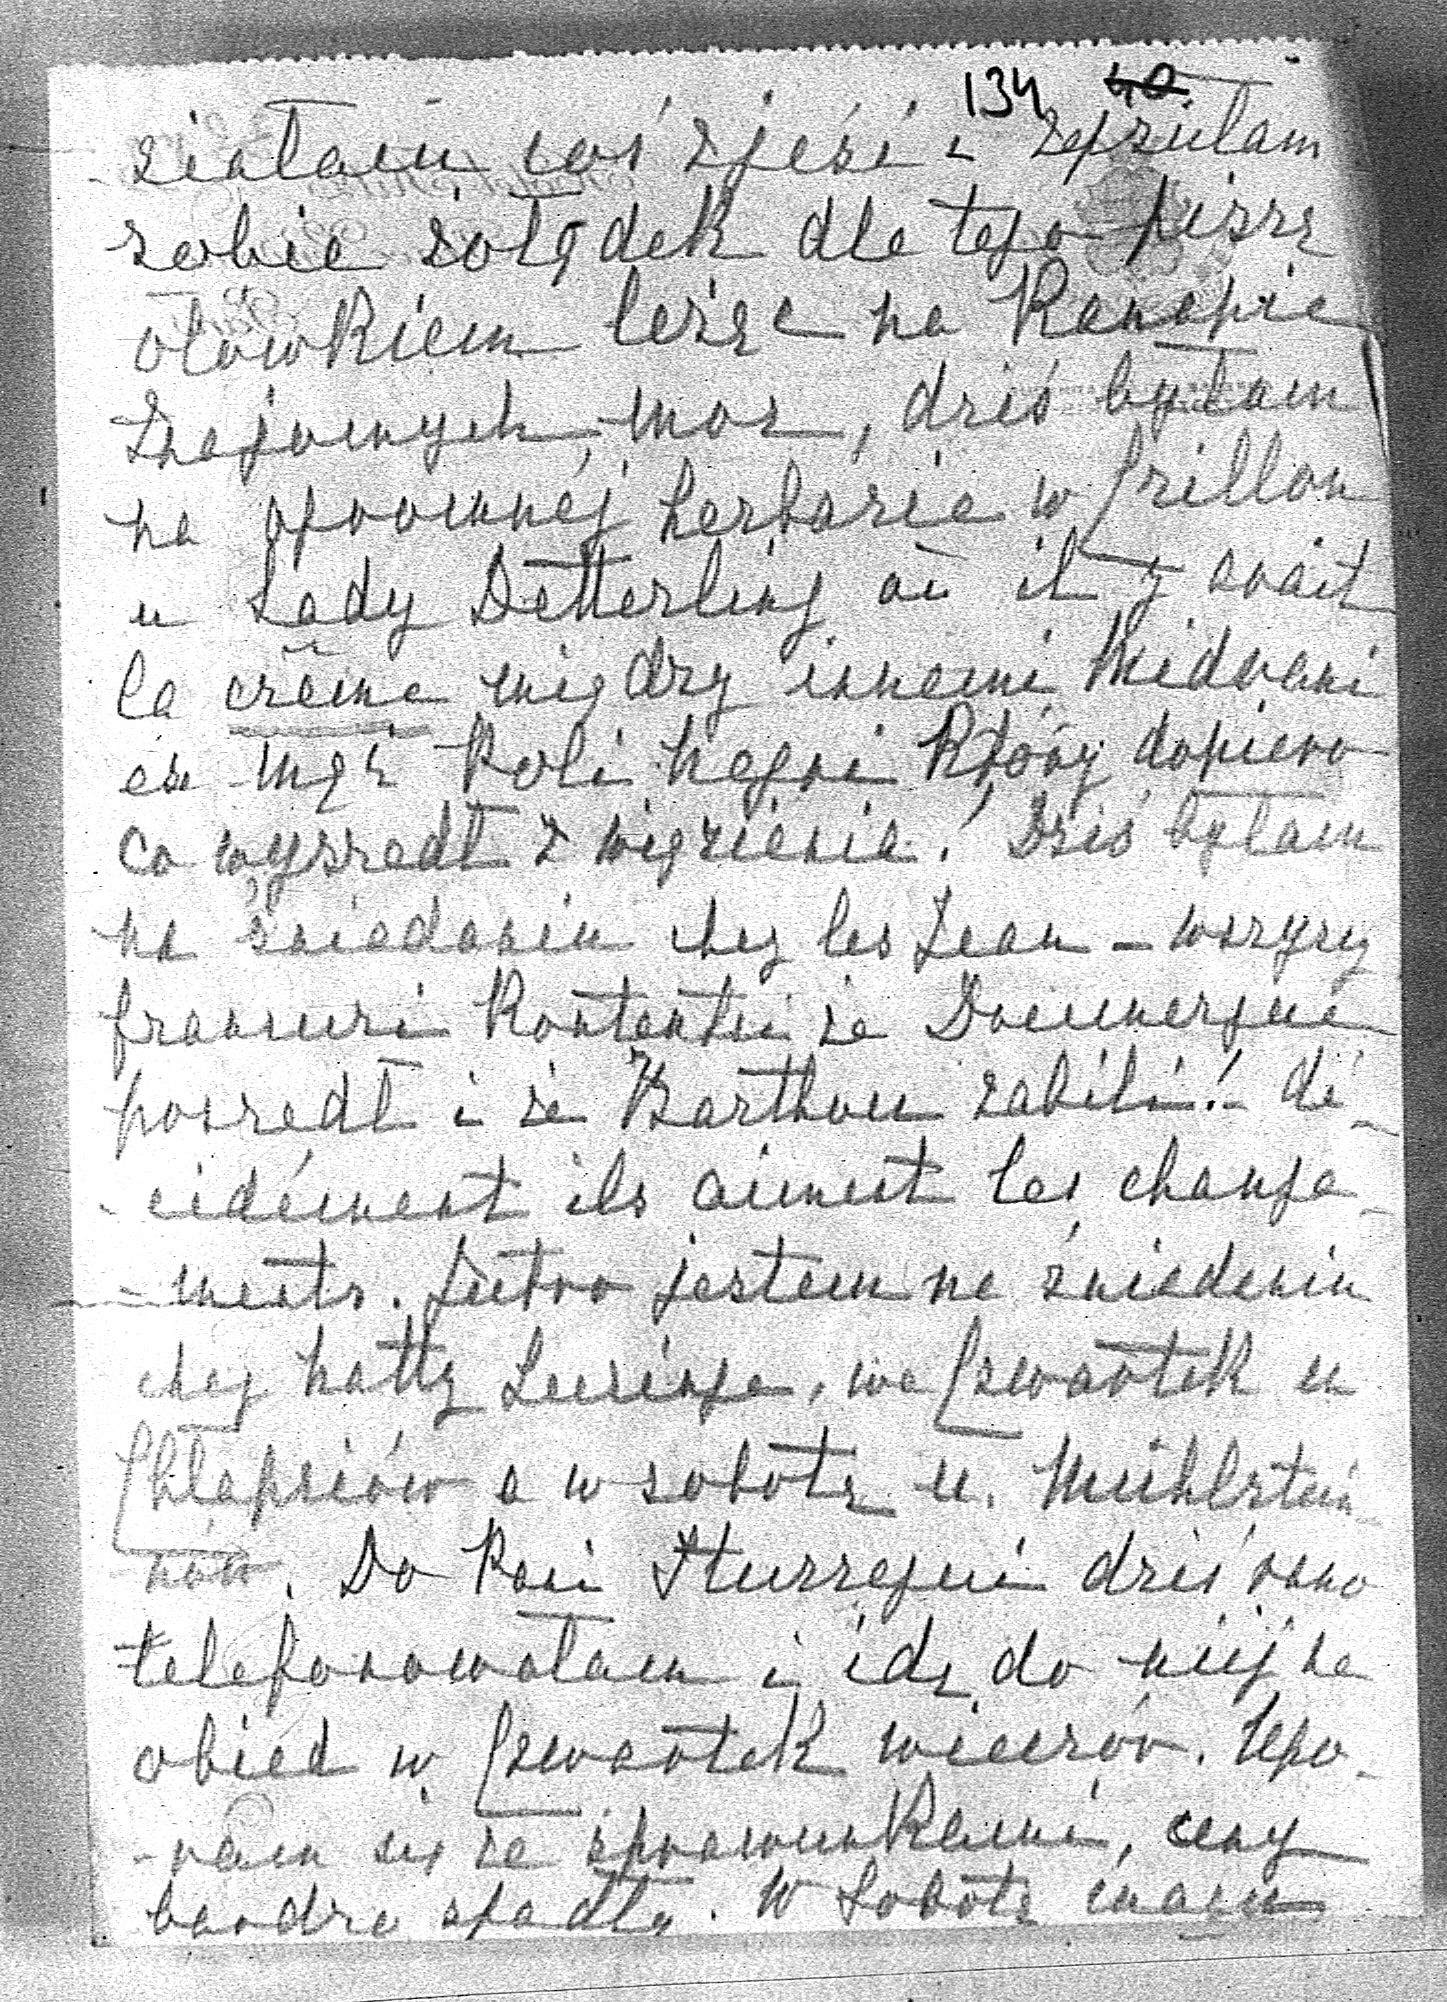 134 40
-siałam coś zjeść i zepsułam
sobie żołądek dla tego piszę
ołówkiem leżąc na Kanapie
Znajomych moc, dziś byłam
na ogromnej herbacie w Crillon
u Lady Detterling où il y avait
la crème między innemi Midvani
ex mąż Poli Negri Który dopiero
co wyszedł z więzienia! Dziś byłam
na śniadaniu chez les Jean - wszyscy
francuzi Kontentni że Doumergue
poszedł i że Barthou zabili! - dé-
-cidément ils aiment les change-
-ments. Jutro jestem na śniadaniu
chez Natty Lucinge, we Czwartek u
Chłapsiów a w sobotę u Mühlstei-
nów. Do Pani Iturregui dziś rano
telefonowałam i idę do niej na
obiad w Czwartek wieczór. Upo-
-ram się ze sprawunkami, ceny
bardzo spadły. W Sobotę